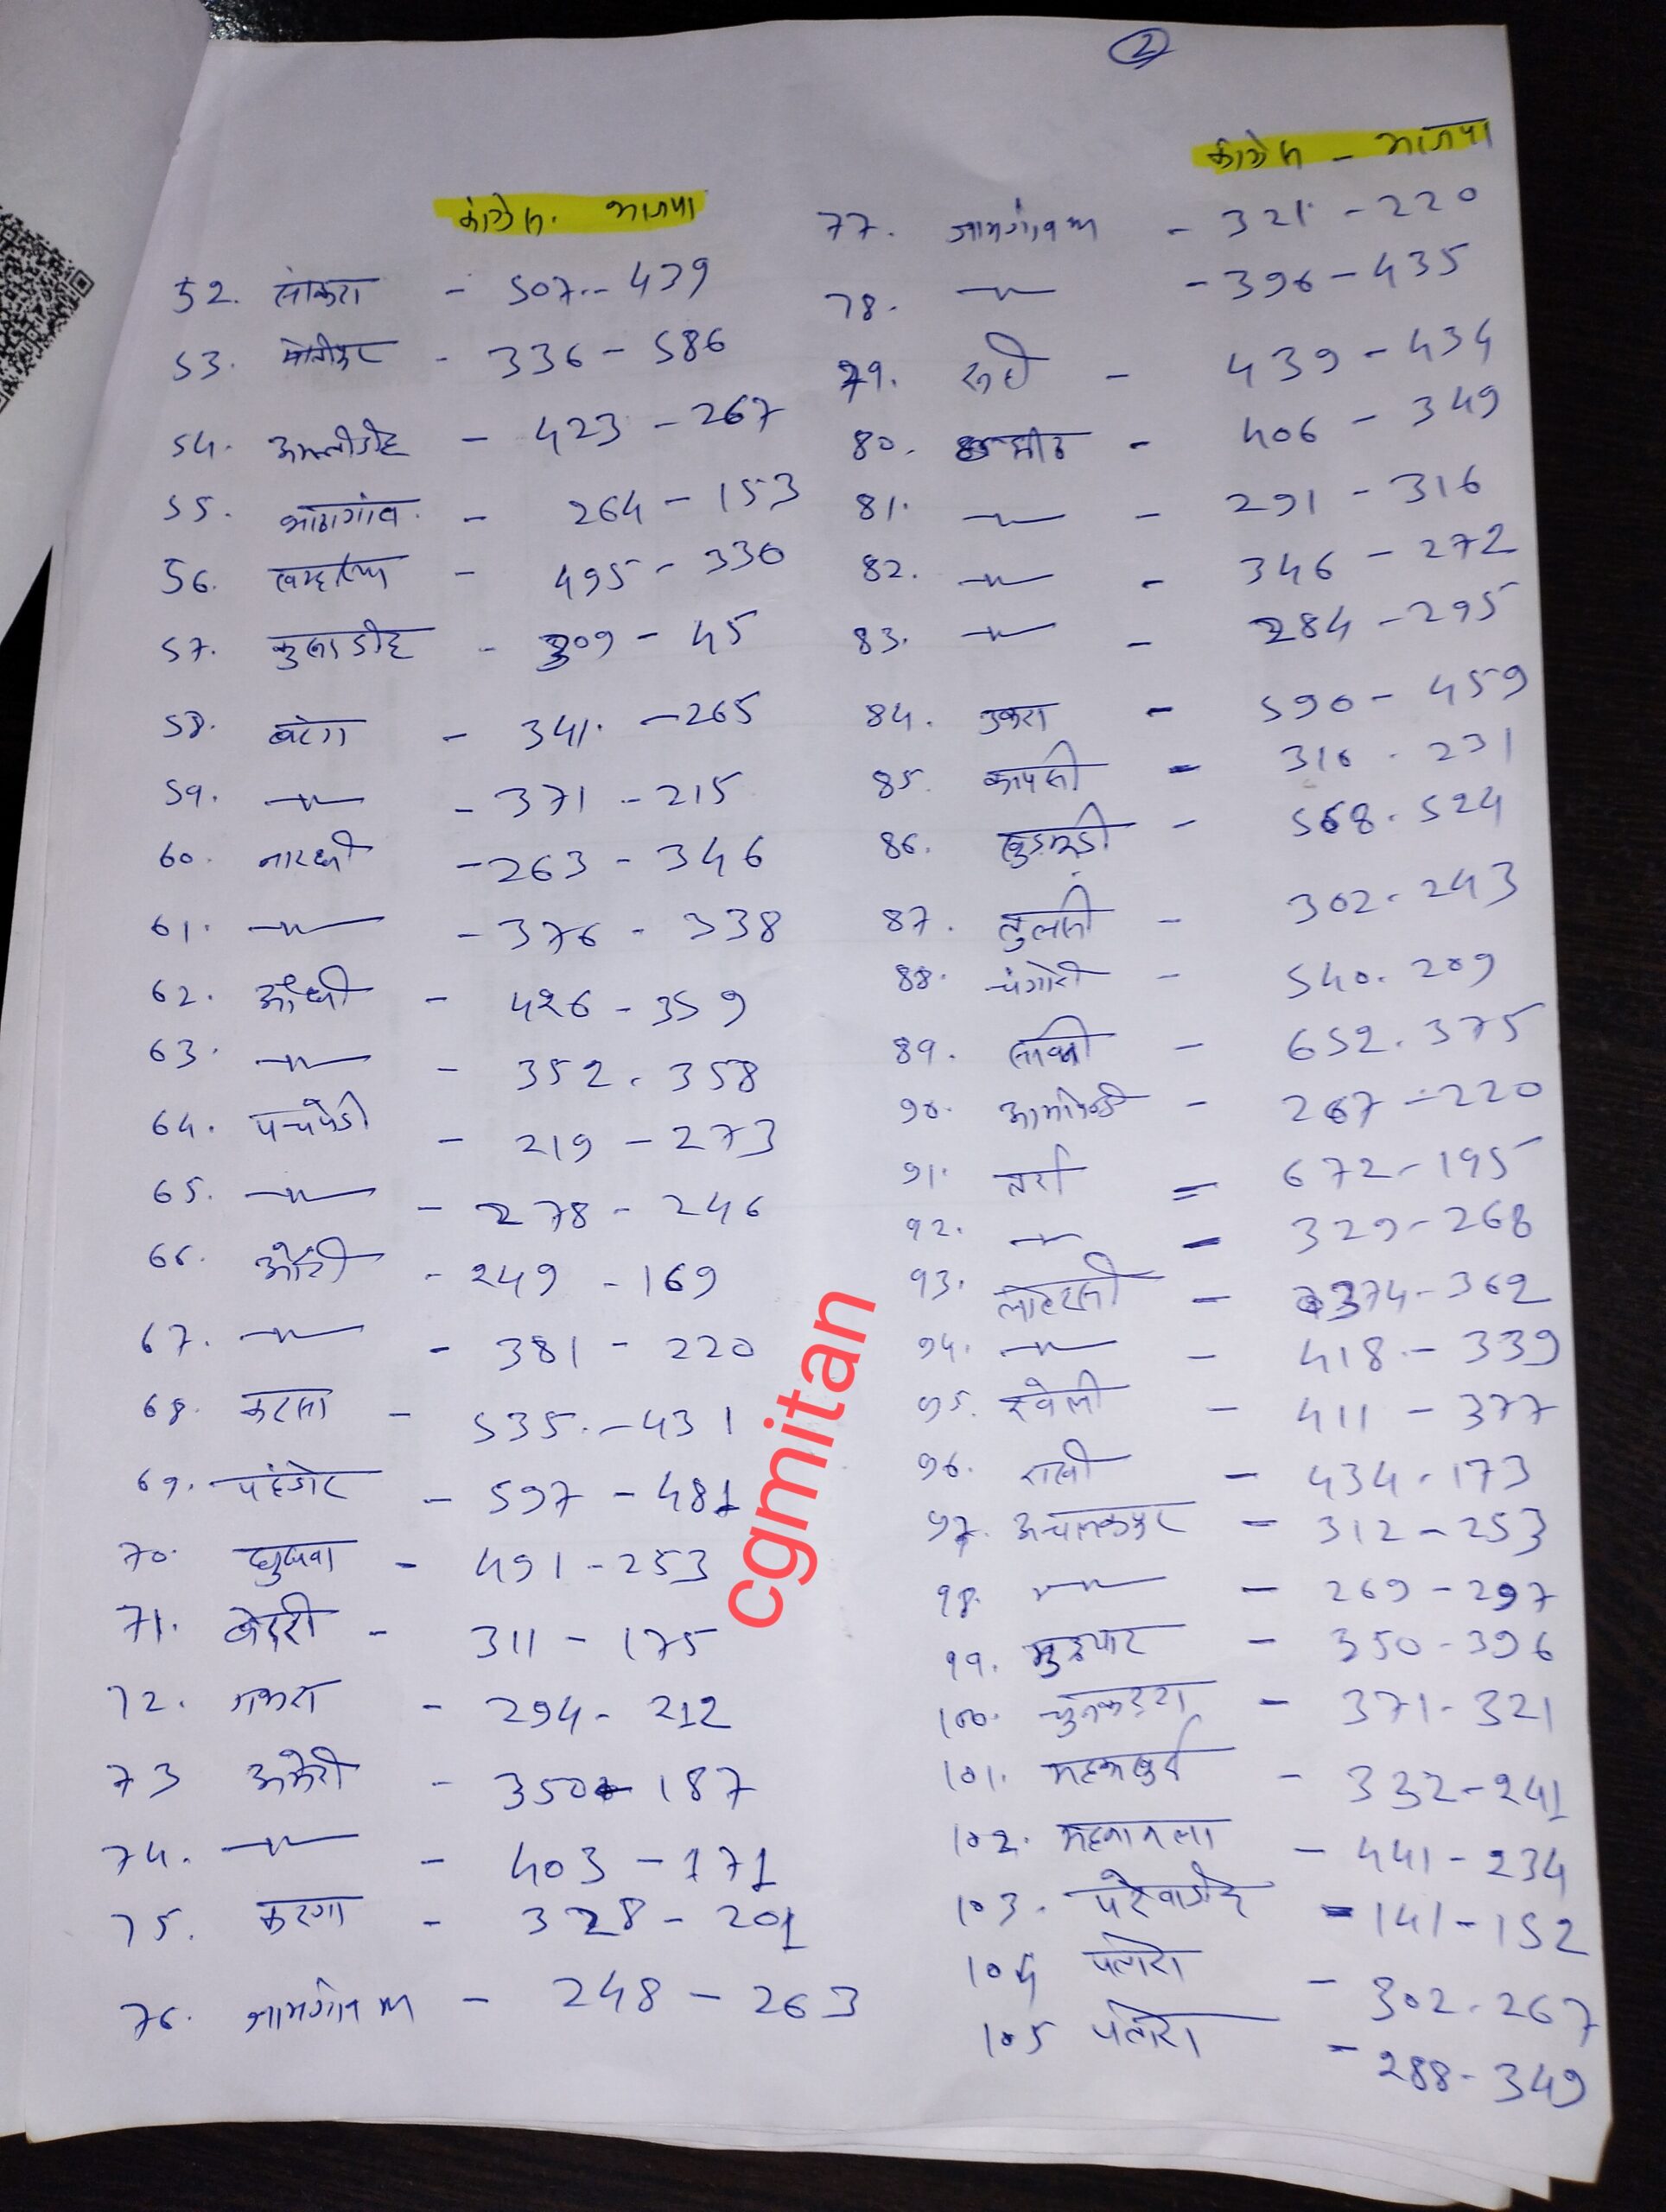 2
कांग्रेस. भाजपा
52. सांकरा - 507 - 439
53. मोतीपुर - 336 - 586
54. अमलीडीह - 423 - 267
55. भाठागांव - 264 - 153
56. खम्हरिया - 495 - 330
57. कुम्हाडीह - 309 - 45
58. बटंग - 341 - 265
59. -〃- - 371 - 215
60. नारधी - 263 - 346
61. -〃- - 376 - 338
62. औंधी - 426 - 359
63. -〃- - 352 - 358
64. पचपेडी - 219 - 273
65. -〃- - 278 - 246
66. ओदरी - 249 - 169
67. -〃- - 381 - 220
68. करसा - 535 - 431
69. पहंडोर - 597 - 481
70. घुघवा - 491 - 253
71. केदरी - 311 - 175
72. - 294 - 212
73 अमेरी - 350 - 187
74. -〃- - 403 - 171
75. करगा - 328 - 201
76. जामगांव M - 248 - 263
कांग्रेस - भाजपा
77. जामगांव M - 321 - 220
78. -〃- - 396 - 435
79. रूही - 439 - 434
80. झीट - 406 - 349
81. -〃- - 291 - 316
82. -〃- - 346 - 272
83. -〃- - 284 - 295
84. उफरा - 590 - 459
85. कापसी - 316 - 231
86. खुडमुडी - 568 - 524
87. तुलसी - 302 - 243
88. चंगोरी - 540 - 209
89. सांकरी - 652 - 375
90. आमापेन्ड्री - 267 - 220
91. तर्रा = 672 - 195
92. -〃- - 329 - 268
93. लोहरसी - 374 - 362
94. -〃- - 418 - 339
95. रवेली - 411 - 377
96. राखी - 434 - 173
97. अचानकपुर - 312 - 253
98. -〃- - 269 - 297
99. मुडपार - 350 - 396
100. चुनकट्टा - 371 - 321
101. महकाखुर्द - 332 - 241
102. महकाकला - 441 - 234
103. परेवाडीह - 141 - 152
104 पतोरा - 302 - 267
105 पतोरा - 288 - 349
cgmitan